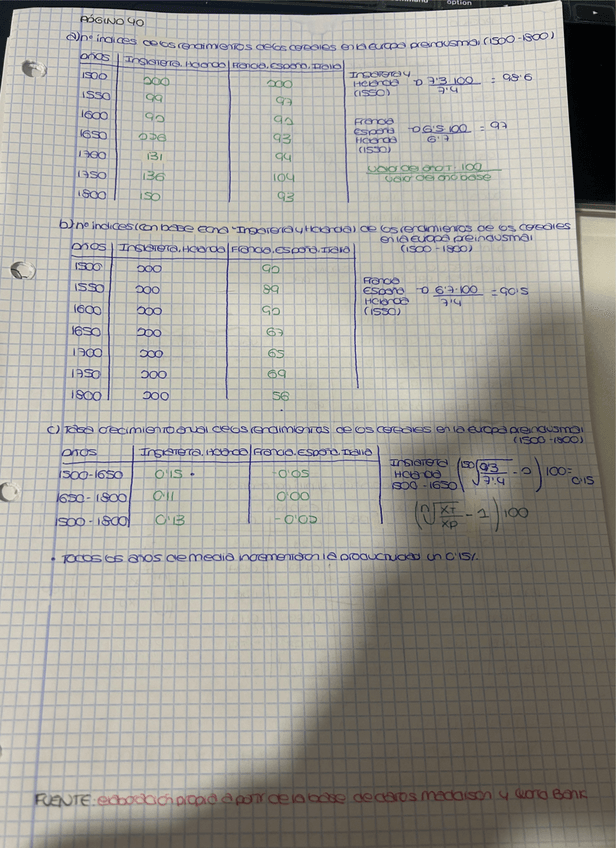 option
PÁGINA 40
a) nº indices de los rendimientos de los cereales en la europa preindustrial (1500-1800)
años | Inglaterra, Holanda | Francia, España, Italia
1500 | 100 | 100
1550 | 99 | 97
1600 | 90
1650 | 93
1700 | 131 | 94
1750 | 136 | 104
1800 | 150 | 93
Inglaterra y
Holanda → 7'3·100 / 7'4 = 98'6
(1550)
Francia
España → 6'5·100 / 6'7 = 97
Holanda
(1550)
valor del año T·100 / valor del año base
b) nº indices (con base 100 "Inglaterra y Holanda) de los rendimientos de los cereales
en la europa preindustrial
(1500-1800)
años | Inglaterra, Holanda | Francia, España, Italia
1500 | 100
1550 | 100 | 89
1600 | 100
1650 | 100 | 67
1700 | 100 | 65
1750 | 100 | 69
1800 | 100 | 56
Francia
España → 6'7·100 / 7'4 = 90'5
Holanda
(1550)
c) Tasa crecimiento anual de los rendimientos de los cereales en la europa preindustrial
(1500-1800)
años | Inglaterra, Holanda | Francia, España, Italia
1500-1650 | 0'15 | -0'05
1650-1800 | 0'11 | 0'00
1500-1800 | 0'13 | -0'02
Inglaterra
Holanda
1500-1650
(150√9'3/7'4 - 1) 100 = 0'15
(n√XT/XP - 1) 100
· Todos los años de media incrementan la productividad un 0'15%.
FUENTE: elaboración propia a partir de la base de datos Maddison y World Bank